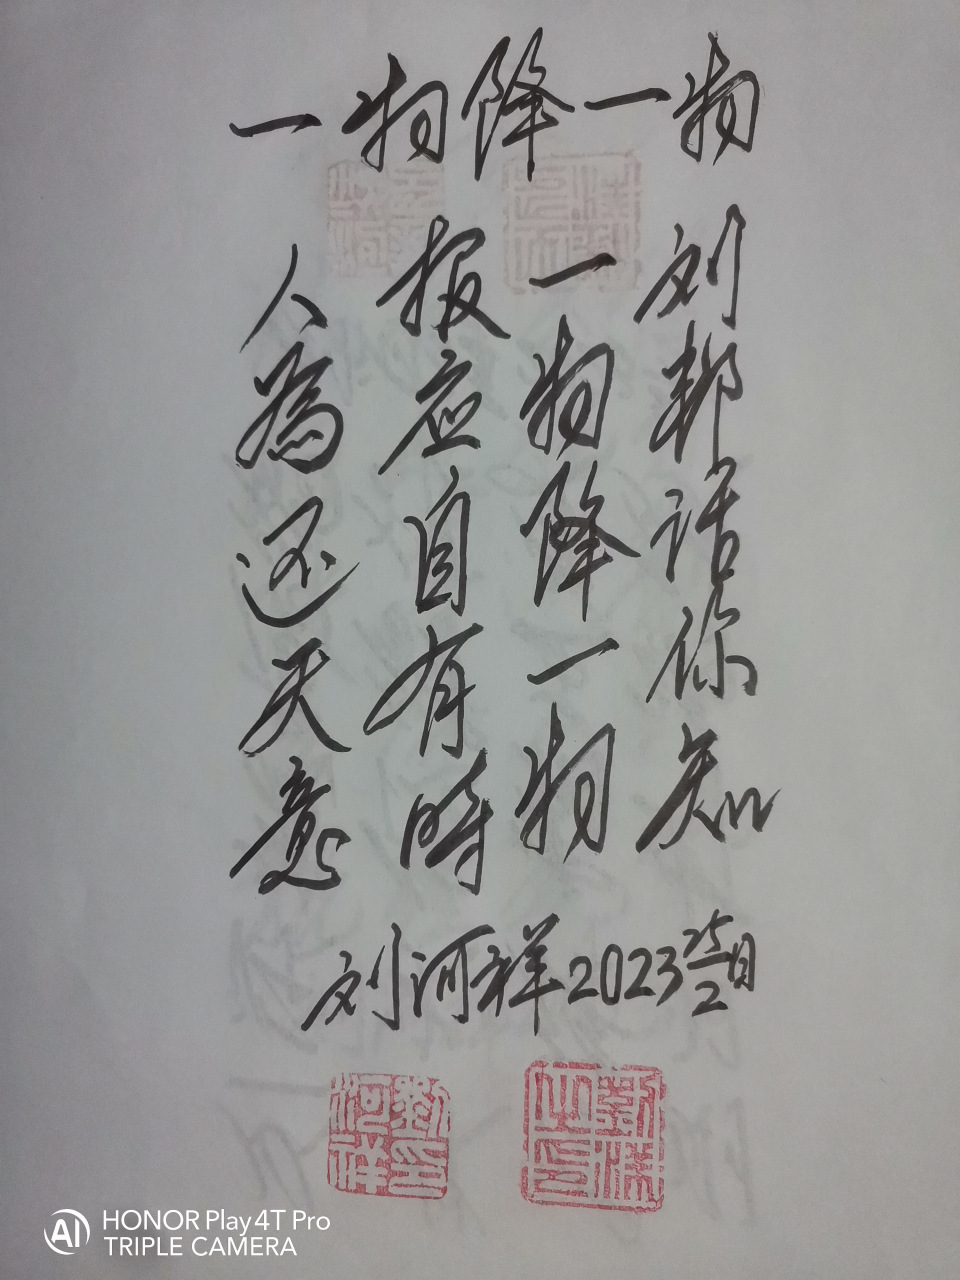 一物降一物
刘邦话你知
一物降一物
报应自有時
人為还天意
刘河祥2023
HONOR Play4T Pro
TRIPLE CAMERA